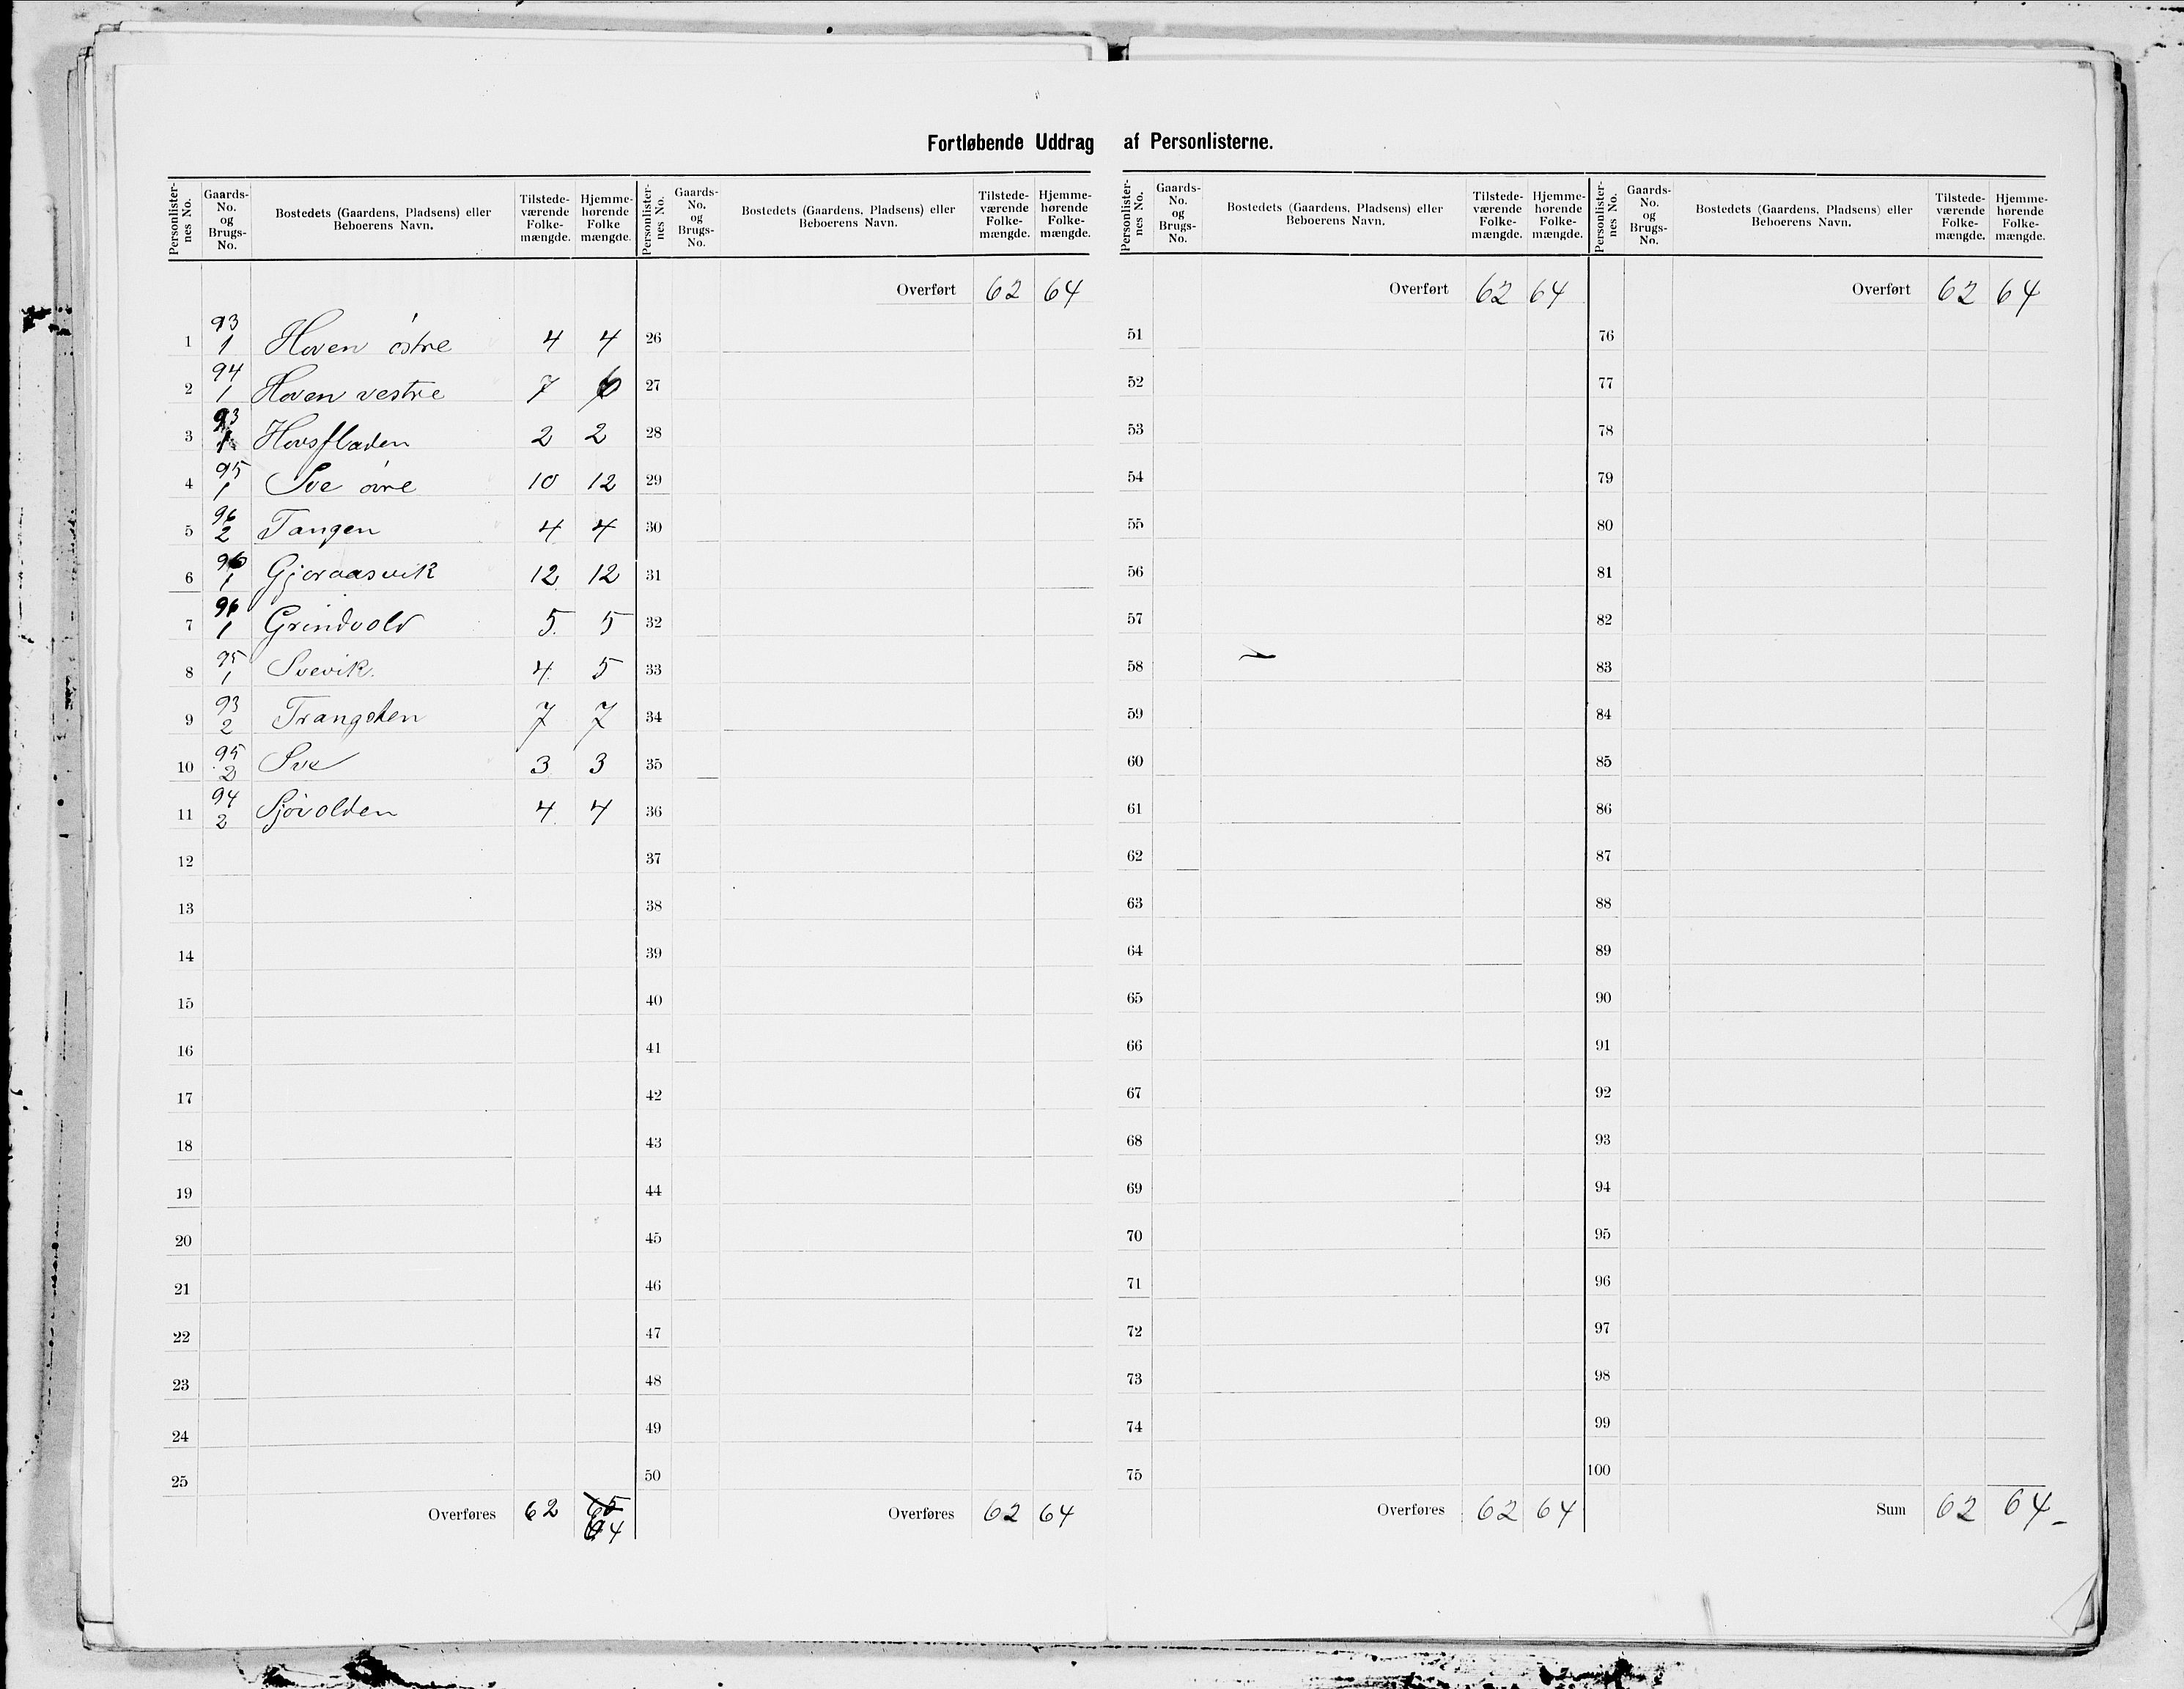 Fortløbende Uddrag af Personlisterne.
Personlister-nes No. Gaards-No. og Brugs-No. Bostedets (Gaardens, Pladsens) eller Beboerens Navn. Tilstede-værende Folke-mængde. Hjemme-hørende Folke mængde.
1 93 1 Hoven østre 4 4
2 94 1 Hoven vestre 7 6
3 93 1 Hovsfladen 2 2
4 95 1 Sve øvre 10 12
5 96 2 Tangen 4 4
6 96 1 Gjøraasvik 12 12
7 96 1 Grindvold 5 5
8 95 1 Svevik. 4 5
9 93 2 Trangsten 7 7
10 95 2 Sve 3 3
11 94 2 Sjövolden 4 4
12
13
14
15
16
17
18
19
20
21
22
23
24
25
Overføres 62 65
64
Personlister-nes No. Gaards-No. og Brugs-No. Bostedets (Gaardens, Pladsens) eller Beboerens Navn. Tilstede-værende Folke-mængde. Hjemme-hørende Folke-mængde.
Overført 62 64
26
27
28
29
30
31
32
33
34
35
36
37
38
39
40
41
42
43
44
45
46
47
48
49
50
Overføres 62 64
Personlister-nes No. Gaards-No. og Brugs-No. Bostedets (Gaardens, Pladsens) eller Beboerens Navn. Tilstede-værende Folke-mængde. Hjemme-hørende Folke-mængde.
Overført 62 64
51
52
53
54
55
56
57
58
59
60
61
62
63
64
65
66
67
68
69
70
71
72
73
74
75
Overføres 62 64
Personlister-nes No. Gaards-No. og Brugs-No. Bostedets (Gaardens, Pladsens) eller Beboerens Navn. Tilstede-værende Folke-mængde. Hjemme-hørende Folke-mængde.
Overført 62 64
76
77
78
79
80
81
82
83
84
85
86
87
88
89
90
91
92
93
94
95
96
97
98
99
100
Sum 62 64